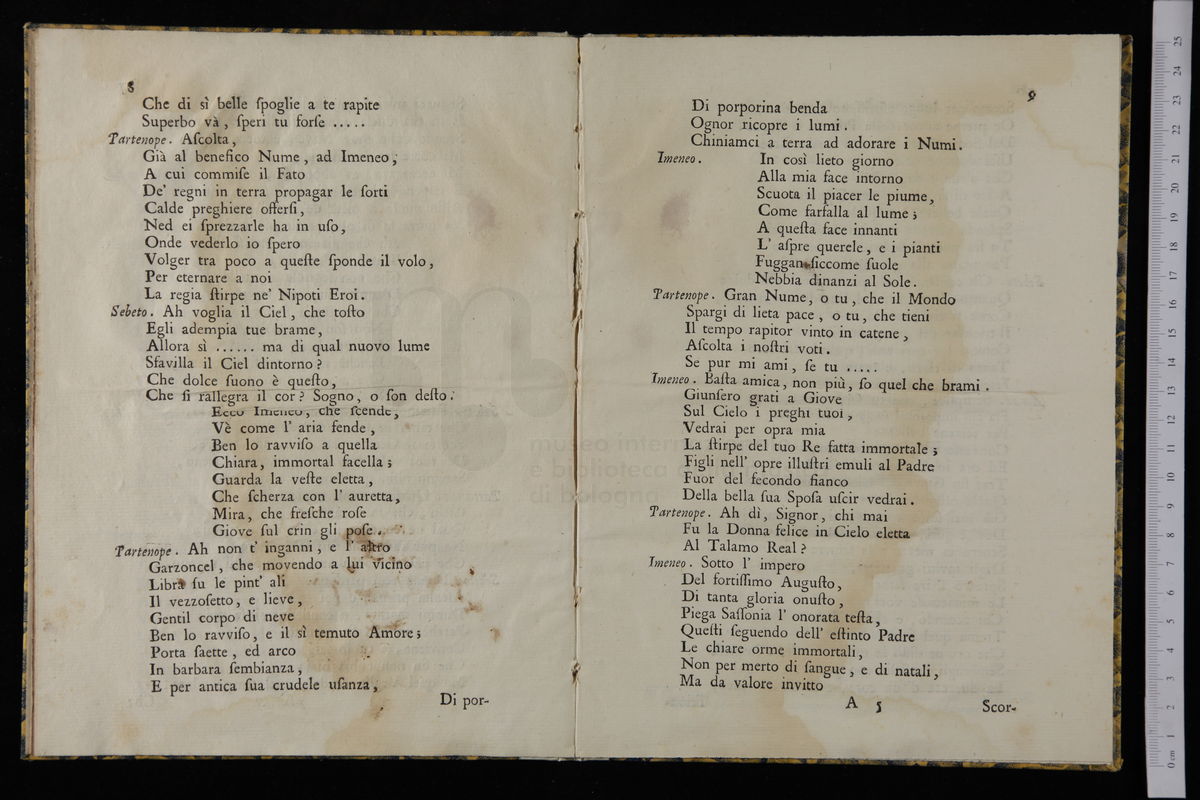 8
Che di sì belle ſpoglie a te rapite
Superbo và, ſperi tu forſe .....
Partenope. Aſcolta,
Già al benefico Nume, ad Imeneo,
A cui commiſe il Fato
De' regni in terra propagar le ſorti
Calde preghiere offerſi,
Ned ei ſprezzarle ha in uſo,
Onde vederlo io ſpero
Volger tra poco a queſte ſponde il volo,
Per eternare a noi
La regia ſtirpe ne' Nipoti Eroi.
Sebeto. Ah voglia il Ciel, che toſto
Egli adempia tue brame,
Allora sì ...... ma di qual nuovo lume
Sfavilla il Ciel dintorno?
Che dolce ſuono è queſto,
Che ſi rallegra il cor? Sogno, o ſon deſto.
Ecco Imeneo, che ſcende,
Vè come l' aria fende,
Ben lo ravviſo a quella
Chiara, immortal facella;
Guarda la veſte eletta,
Che ſcherza con l' auretta,
Mira, che freſche roſe
Giove ſul crin gli poſe.
Partenope. Ah non t' inganni, e l' altro
Garzoncel, che movendo a lui vicino
Libra ſu le pint' ali
Il vezzoſetto, e lieve,
Gentil corpo di neve
Ben lo ravviſo, e il sì temuto Amore;
Porta ſaette, ed arco
In barbara ſembianza,
E per antica ſua crudele uſanza,
Di por-
9
Di porporina benda
Ognor ricopre i lumi.
Chiniamci a terra ad adorare i Numi.
Imeneo. In così lieto giorno
Alla mia face intorno
Scuota il piacer le piume,
Come farfalla al lume;
A queſta face innanti
L' aſpre querele, e i pianti
Fuggan ſiccome ſuole
Nebbia dinanzi al Sole.
Partenope. Gran Nume, o tu, che il Mondo
Spargi di lieta pace, o tu, che tieni
Il tempo rapitor vinto in catene,
Aſcolta i noſtri voti.
Se pur mi ami, ſe tu .....
Imeneo. Baſta amica, non più, ſo quel che brami.
Giunſero grati a Giove
Sul Cielo i preghi tuoi,
Vedrai per opra mia
La ſtirpe del tuo Re fatta immortale;
Figli nell' opre illuſtri emuli al Padre
Fuor del fecondo fianco
Della bella ſua Spoſa uſcir vedrai.
Partenope. Ah dì, Signor, chi mai
Fu la Donna felice in Cielo eletta
Al Talamo Real?
Imeneo. Sotto l' impero
Del fortiſſimo Auguſto,
Di tanta gloria onuſto,
Piega Saſſonia l' onorata teſta,
Queſti ſeguendo dell' eſtinto Padre
Le chiare orme immortali,
Non per merto di ſangue, e di natali,
Ma da valore invitto
A 5 Scor-